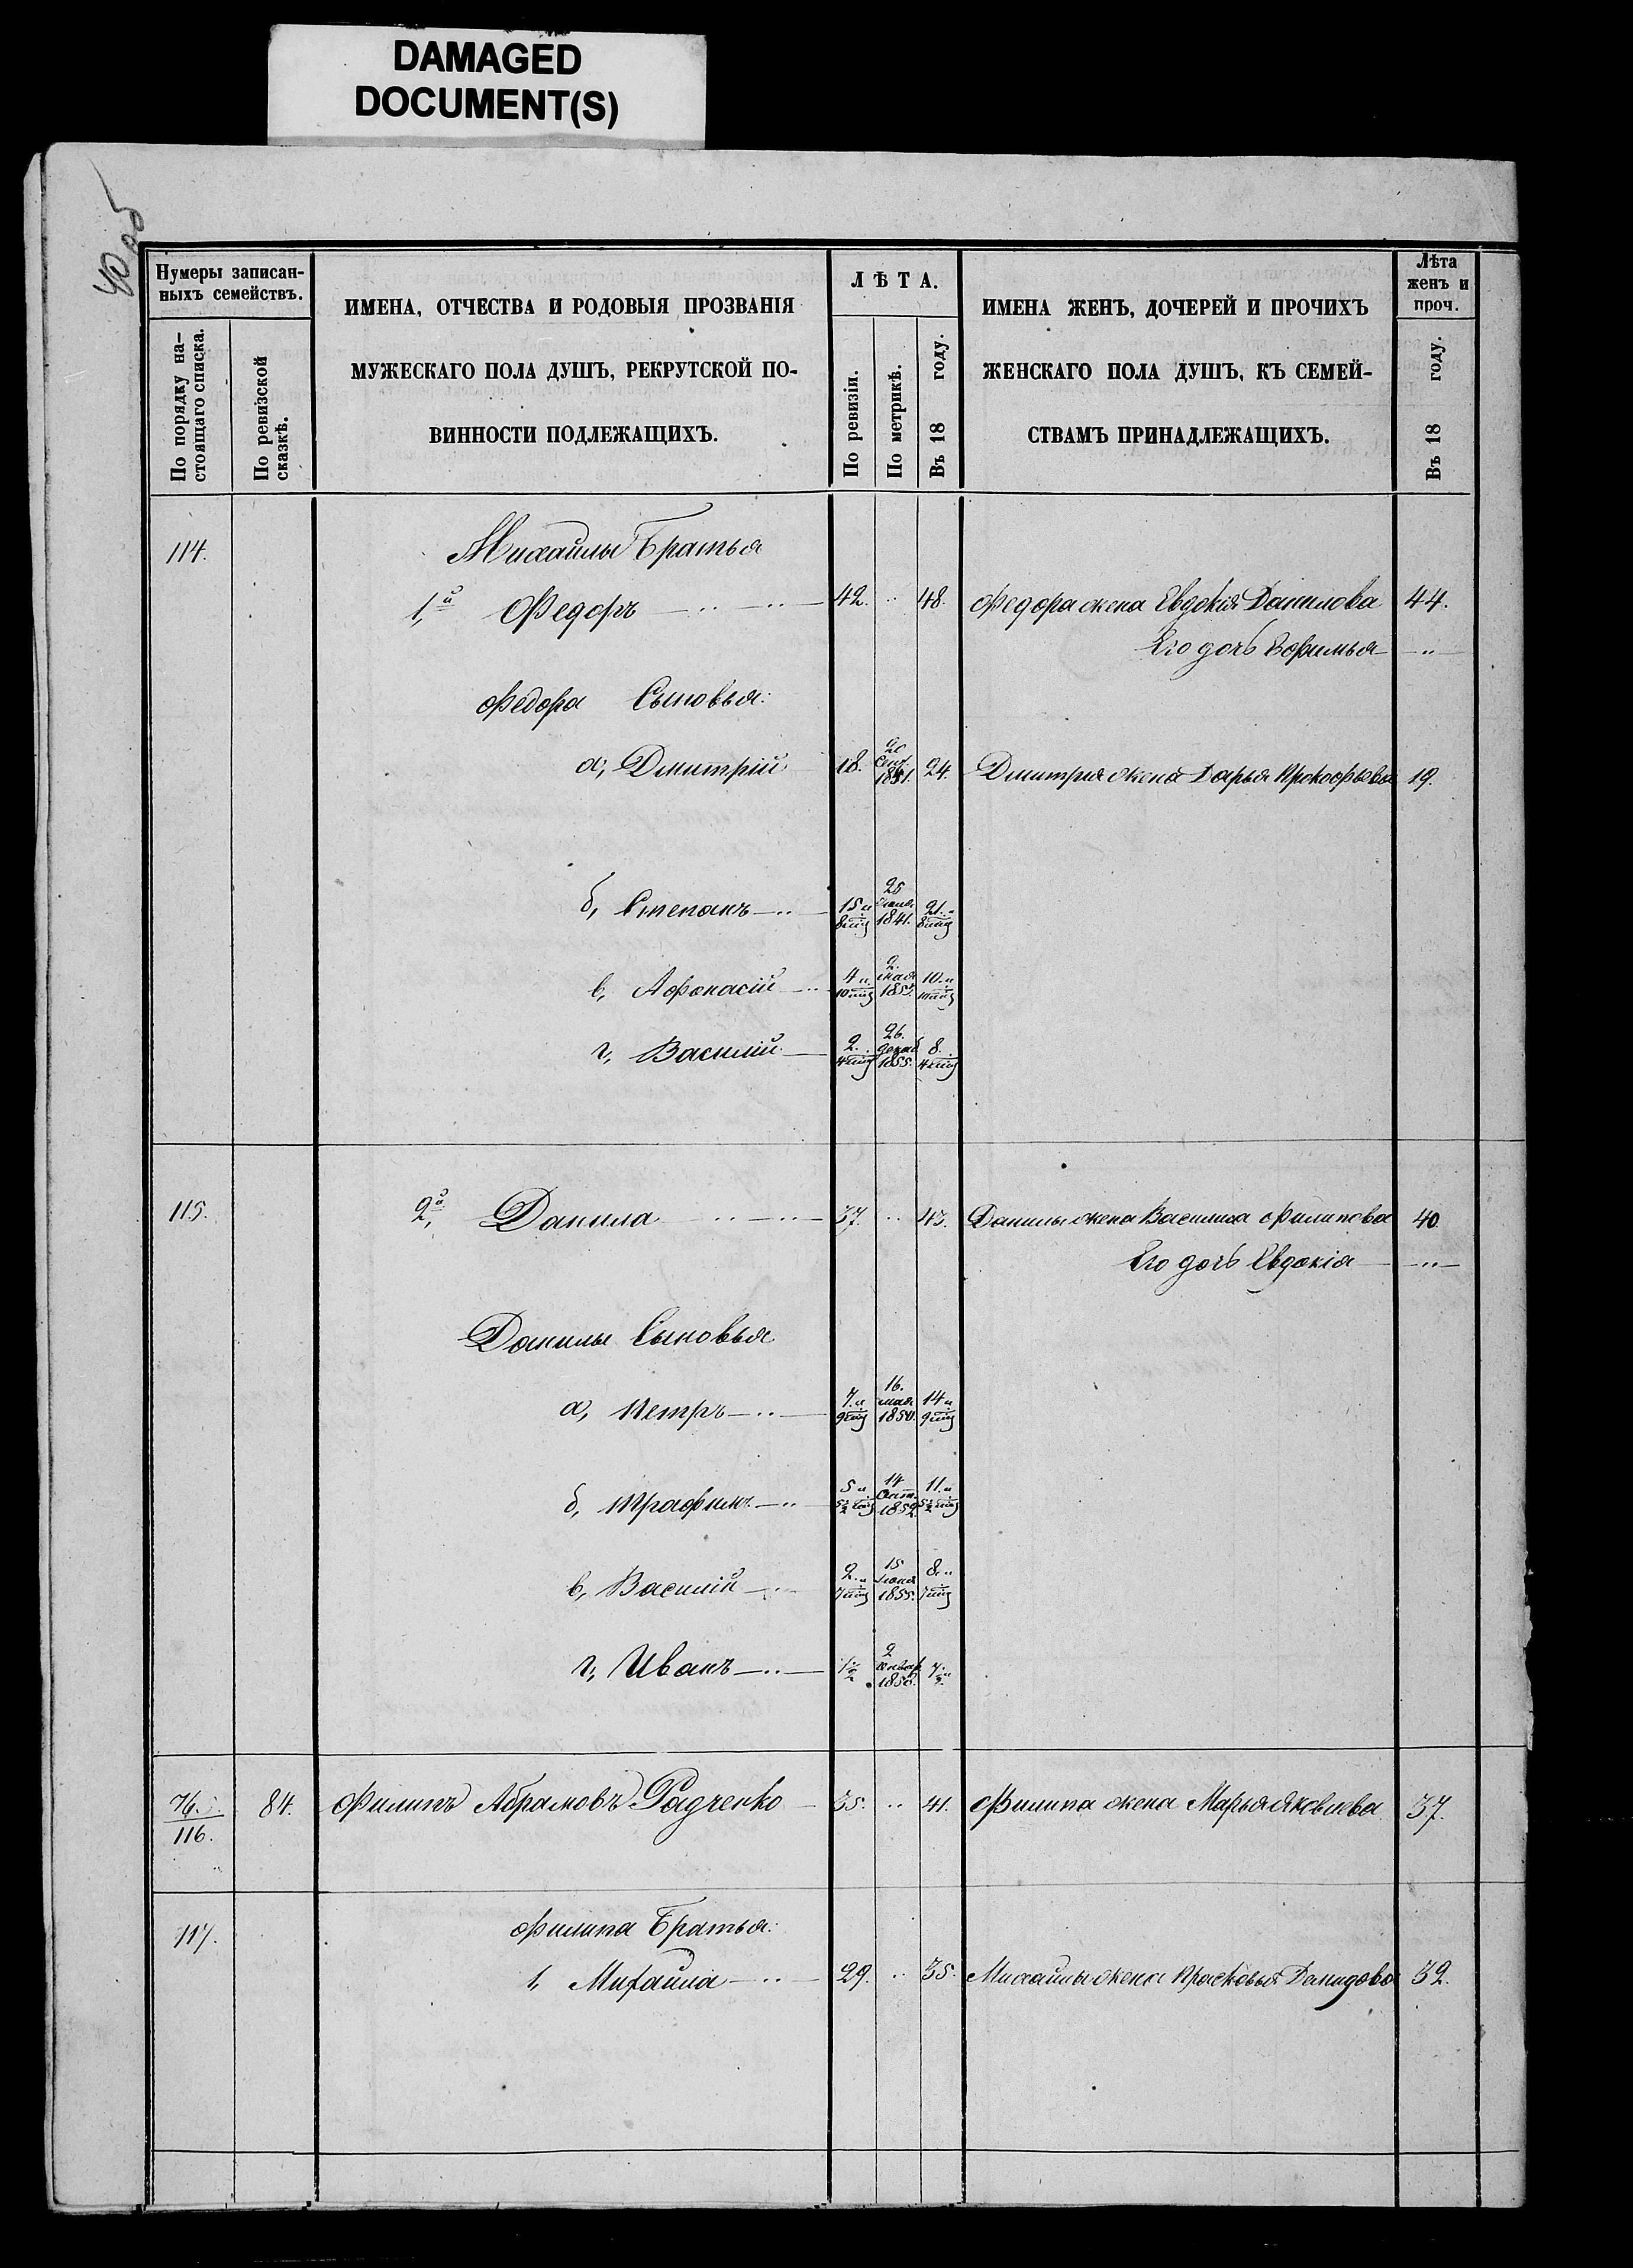 DAMAGED
DOCUMENT(S)
40 об
Нумеры записан-
ныхъ семействъ.
По порядку на-
стоящаго списка.
По ревизской
сказкѣ.
ИМЕНА, ОТЧЕСТВА И РОДОВЫЯ ПРОЗВАНІЯ
МУЖЕСКАГО ПОЛА ДУШЪ, РЕКРУТСКОЙ ПО-
ВИННОСТИ ПОДЛЕЖАЩИХЪ.
ЛѢТА.
По ревизіи.
По метрикѣ.
Въ 18 году.
ИМЕНА ЖЕНЪ, ДОЧЕРЕЙ И ПРОЧИХЪ
ЖЕНСКАГО ПОЛА ДУШЪ, КЪ СЕМЕЙ-
СТВАМЪ ПРИНАДЛЕЖАЩИХЪ.
Лѣта
женъ и
проч.
Въ 18 году.
114. Михайлы Братья
1,й Федоръ 42. 48. Федора жена Евдокія Данилова 44.
Его дочь Ефимья
Федора Сыновья:
а, Дмитрій 18. 24. Дмитрия жена Дарья Прокофьева 19.
б, Степанъ 15 и 8 25 1841. 21 и 8
в, Афонасій 4 и 10 2 10 и 10
г, Василій 2. 4 26. декаб 1855. 8. 4
115. 2,й Данила 37. 43. Данилы жена Василиса Филипова 40.
Его дочь Евдокія
Данилы Сыновья
а, Петръ 7. и 9 16. 1850. 14 и 9
б, Трафимъ 5 и 5½ 14 1852 11. и 5½
в, Василій 2. и 7 15 Іюня 1855. 8. и 7
г, Иванъ ½ 2 1858.
76. 116. 84. Филипъ Абрамовъ Радченко 35. 41. Филипа жена Марья Яковлева 37.
117. Филипа Братья:
1, Михайла 29. 35. Михайлы жена Прасковья Демидова 32.